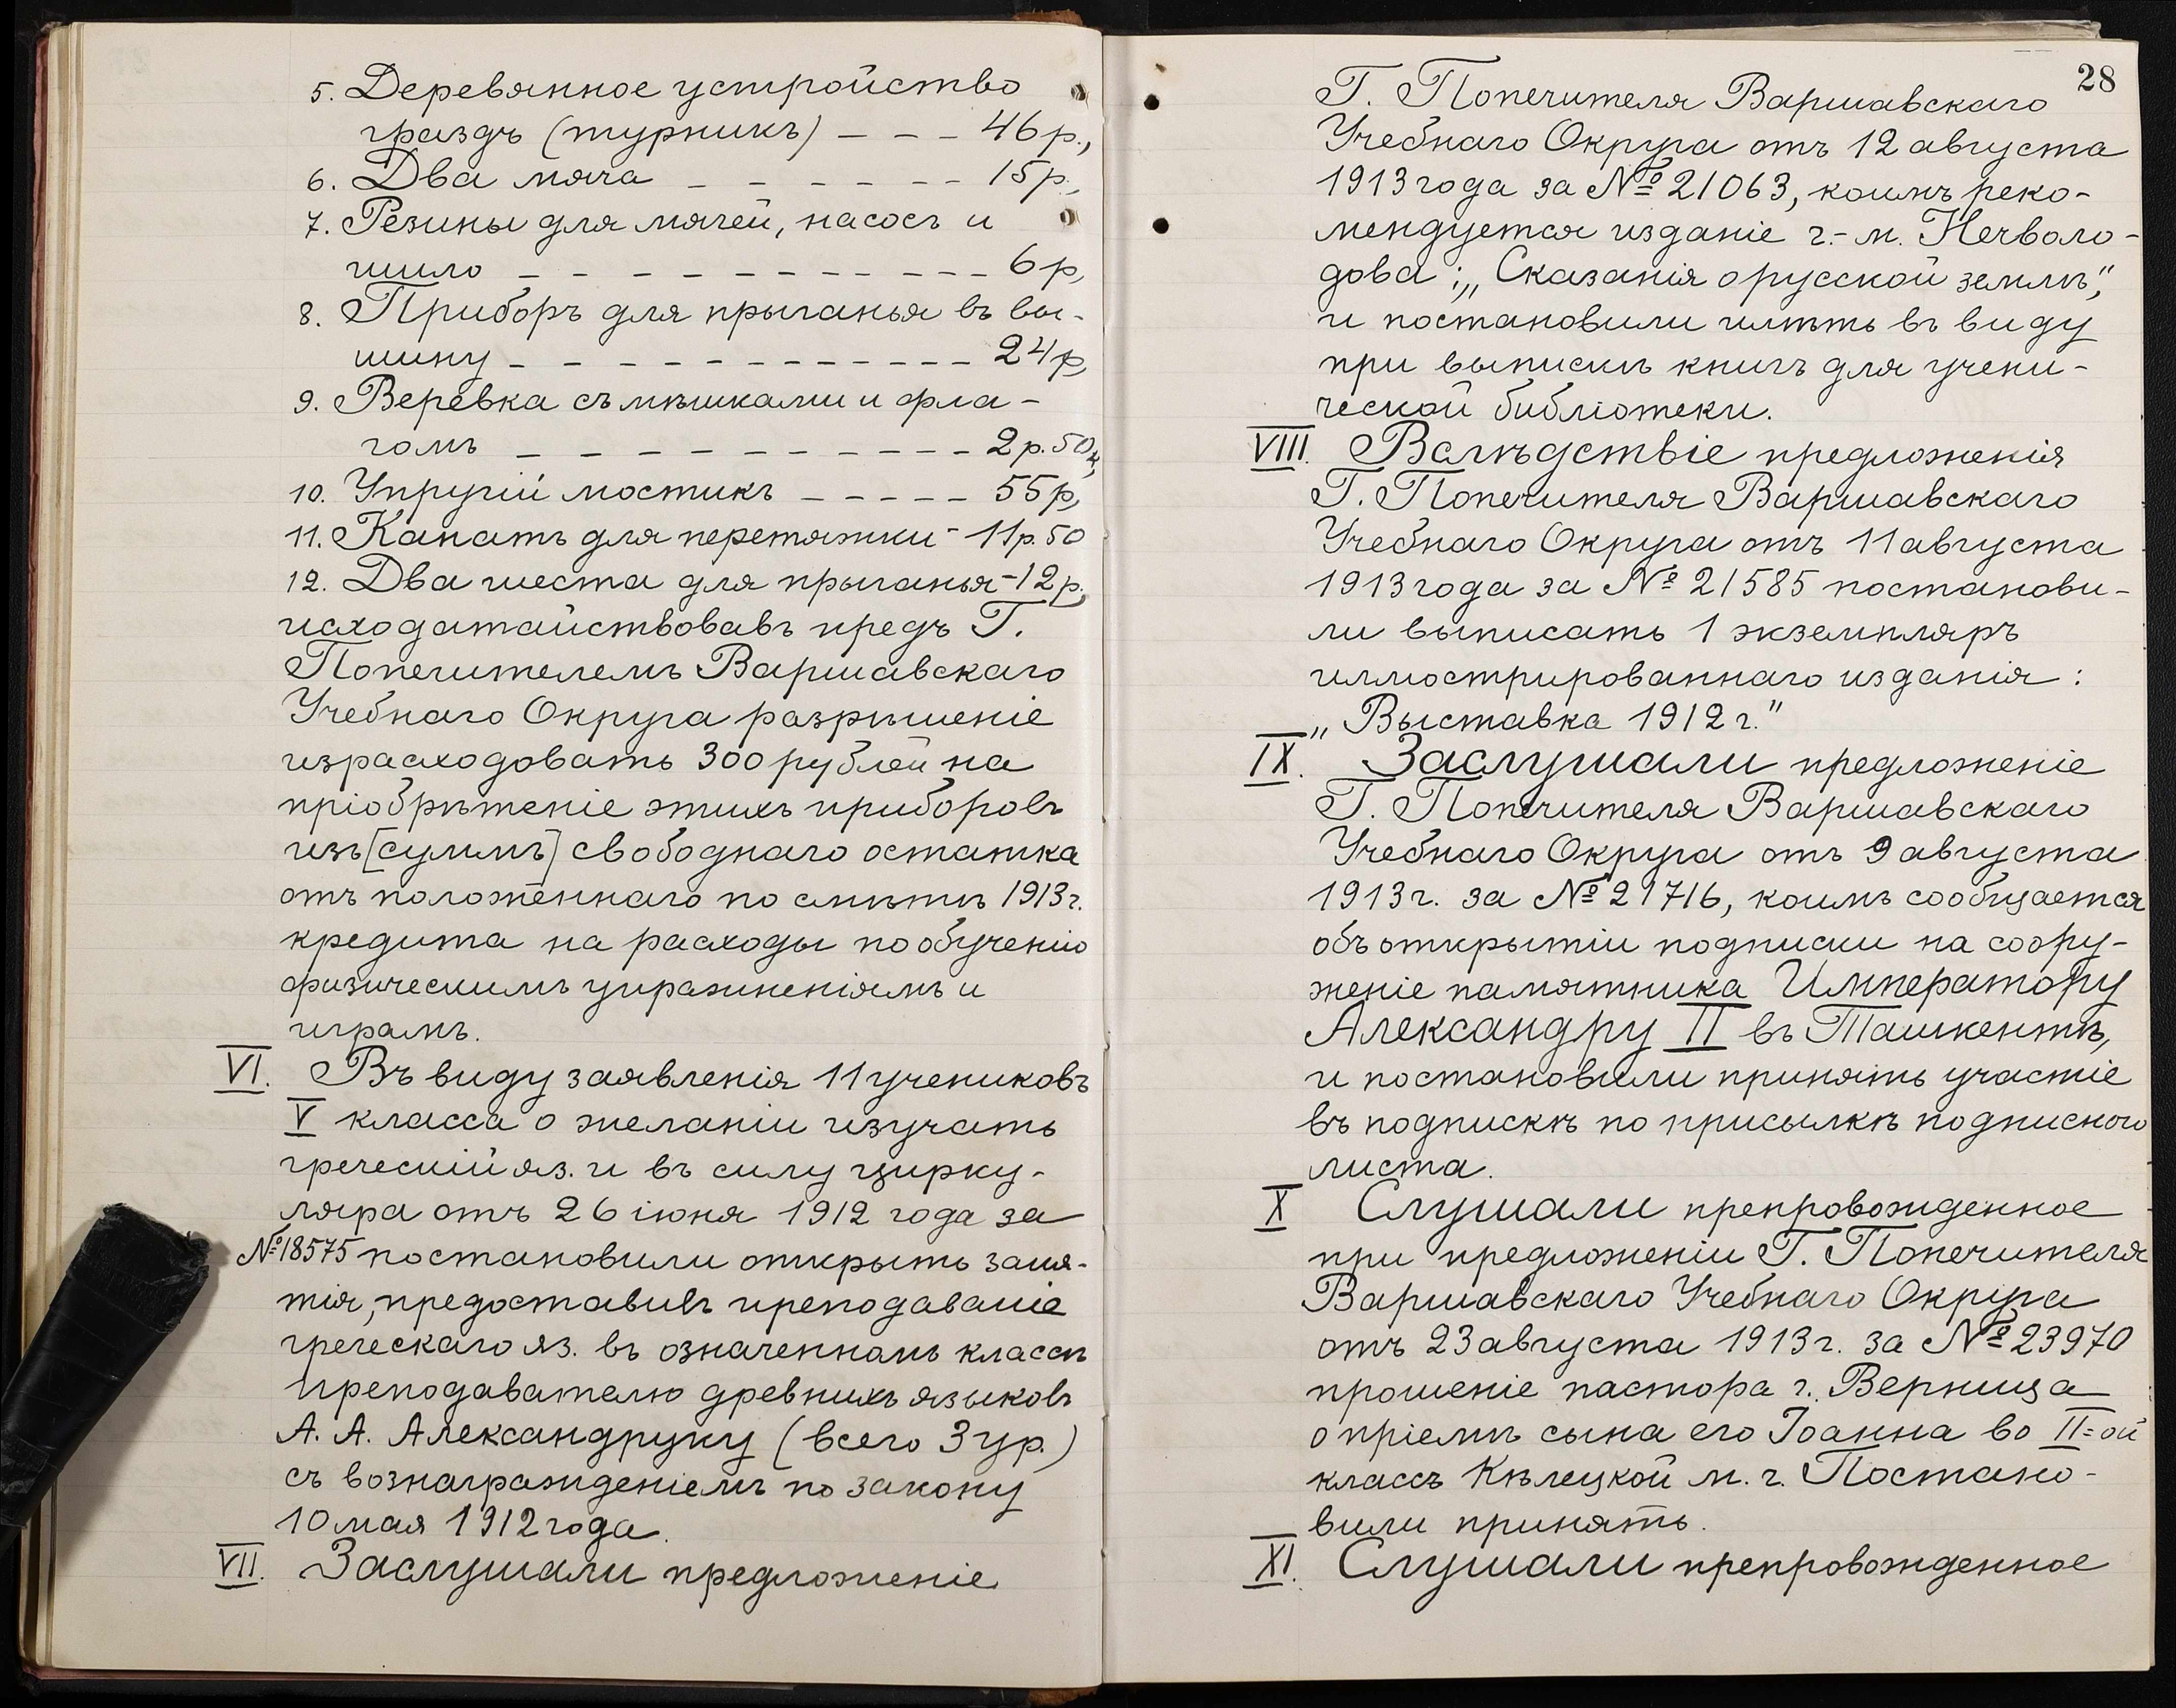 5. Деревянное устройство
граздъ (турникъ) – – – 46 р.,
6. Два мяча – – – – – – 15 р.,
7. Резины для мячей, насосъ и
шило – – – – – – – – – – – 6 р,
8. Приборъ для прыганья въ вы-
шину – – – – – – – – – – – – 24 р,
9. Веревка съ мѣшками и фла-
гомъ – – – – – – – – – – – 2 р. 50 к,
10. Упругій мостикъ – – – – – 55 р,
11. Канатъ для перетяжки – 11 р. 50
12. Два шеста для прыганья – 12 р.,
исходатайствовавъ предъ Г.
Попечителемъ Варшавскаго
Учебнаго Округа разрѣшеніе
израсходовать 300 рублей на
пріобрѣтеніе этихъ приборовъ
изъ [суммъ] свободнаго остатка
отъ положеннаго по смѣтѣ 1913 г.
кредита на расходы по обученію
физическимъ упражненіямъ и
играмъ.
VI. Въ виду заявленія 11 учениковъ
V класса о желаніи изучать
греческій яз. и въ силу цирку-
ляра отъ 26 іюня 1912 года за
№ 18575 постановили открыть заня-
тія, предоставивъ преподаваніе
греческаго яз. въ означенномъ классѣ
преподавателю древнихъ языковъ
А. А. Александруку (всего 3 ур.)
съ вознагражденіемъ по закону
10 мая 1912 года.
VII. Заслушали предложеніе
28
Г. Попечителя Варшавскаго
Учебнаго Округа отъ 12 августа
1913 года за № 21063, коимъ реко-
мендуется изданіе г.-м. Нечволо-
дова: „Сказанія о русской землѣ",
и постановили имѣть въ виду
при выпискѣ книгъ для учени-
ческой библіотеки.
VIII. Вслѣдствіе предложенія
Г. Попечителя Варшавскаго
Учебнаго Округа отъ 11 августа
1913 года за № 21585 постанови-
ли выписать 1 экземпляръ
иллюстрированнаго изданія:
„Выставка 1912 г."
IX. Заслушали предложеніе
Г. Попечителя Варшавскаго
Учебнаго Округа отъ 9 августа
1913 г. за № 21716, коимъ сообщается
объ открытіи подписки на соору-
женіе памятника Императору
Александру II въ Ташкентѣ,
и постановили принять участіе
въ подпискѣ по присылкѣ подписного
листа.
X Слушали препровожденное
при предложеніи Г. Попечителя
Варшавскаго Учебнаго Округа
отъ 23 августа 1913 г. за № 23970
прошеніе пастора г. Верница
о пріемѣ сына его Іоанна во II=ой
классъ Кѣлецкой м. г. Постано-
вили принять.
XI. Слушали препровожденное